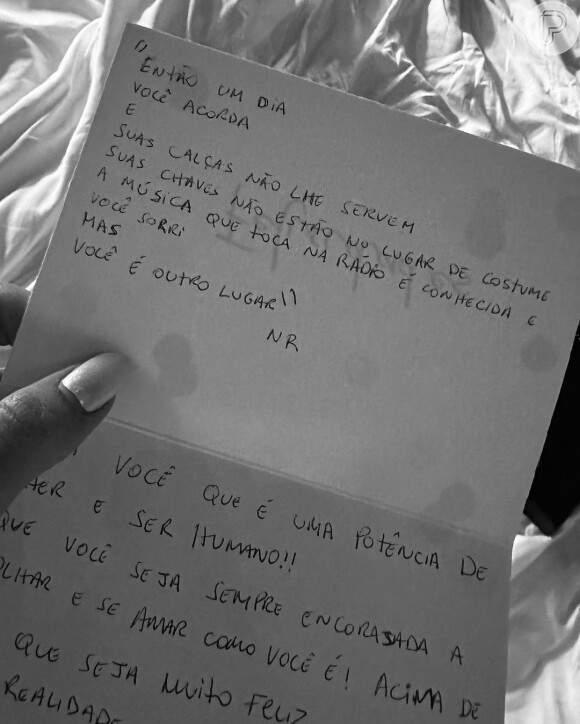 "
ENTÃO UM DIA
VOCÊ ACORDA
E
SUAS CALÇAS NÃO LHE SERVEM
SUAS CHAVES NÃO ESTÃO NO LUGAR DE COSTUME
A MÚSICA QUE TOCA NA RÁDIO É CONHECIDA E
VOCÊ SORRI
MAS
VOCÊ É OUTRO LUGAR"
NR
VOCÊ QUE É UMA POTÊNCIA DE
E SER HUMANO!!
QUE VOCÊ SEJA SEMPRE ENCORAJADA A
OLHAR E SE AMAR COMO VOCÊ É! ACIMA DE
QUE SEJA MUITO FELIZ
REALIDADE